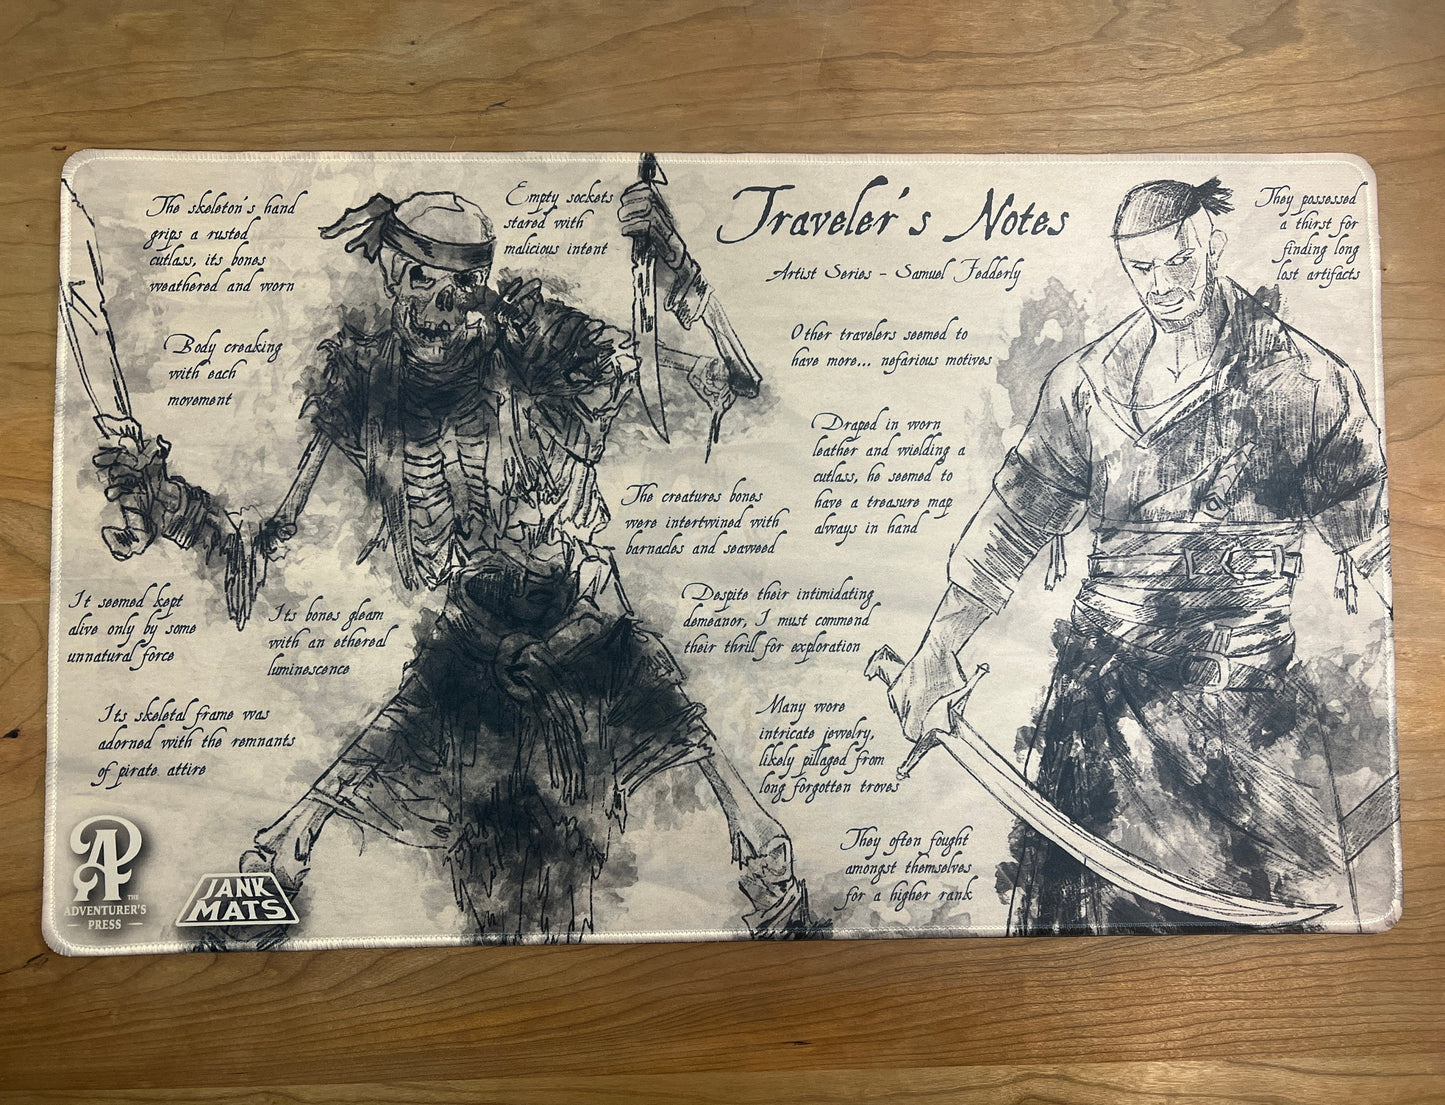 The skeleton's hand
grips a rusted
cutlass, its bones
weathered and worn
Empty sockets
stared with
malicious intent
Body creaking
with each
movement
The creatures bones
were intertwined with
barnacles and seaweed
It seemed kept
alive only by some
unnatural force
Its bones gleam
with an ethereal
luminescence
Its skeletal frame was
adorned with the remnants
of pirate attire
Traveler's Notes
Artist Series - Samuel Fedderly
They possessed
a thirst for
finding long
lost artifacts
Other travelers seemed to
have more... nefarious motives
Draped in worn
leather and wielding a
cutlass, he seemed to
have a treasure map
always in hand
Despite their intimidating
demeaner, I must commend
their thrill for exploration
Many wore
intricate jewelry,
likely pillaged from
long forgotten troves
They often fought
amongst themselves
for a higher rank
AP
THE
ADVENTURER'S
PRESS
JANK
MATS